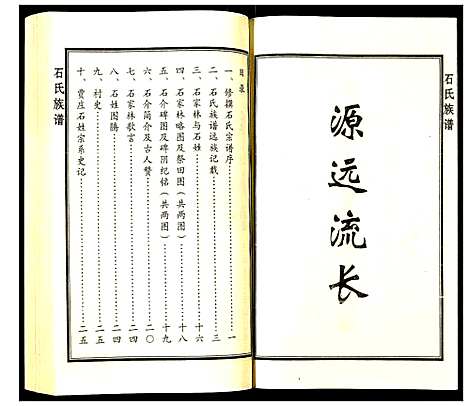 石氏族谱
源远流长
目录
一、修撰石氏宗谱序………一
二、石氏族谱远族记载………三
三、石家林与石姓………十六
四、石家林略图及祭田图(共两图)………十八
五、石介碑图及碑阴纪铭(共两图)………十九
六、石介简介及古人赞………二〇
七、石家林歌言………二四
八、石姓图腾………二四
九、村史………二五
十、贾庄石姓宗系史记………二五
石氏族谱